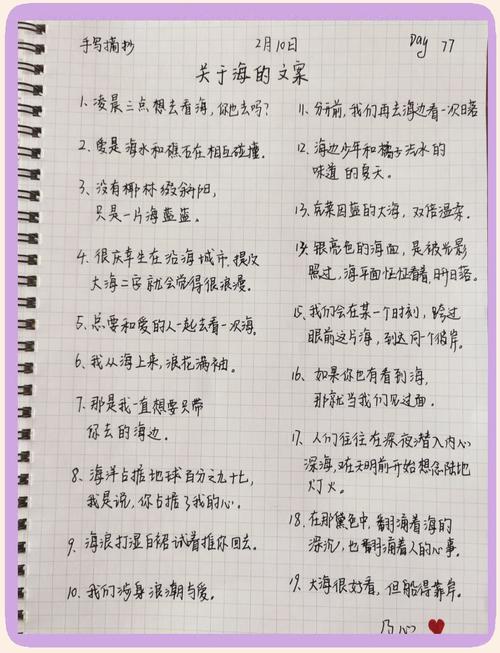 手写摘抄 2月10日 Day 77
关于海的文案
1、凌晨三点想去看海，你也去吗？
2、爱是海水和礁石在相互碰撞.
3、没有椰林缀斜阳，
只是一片海蓝蓝。
4、很庆幸生在沿海城市.提及
大海二字就会觉得很浪漫。
5、总要和爱的人一起去看一次海。
6、我从海上来，浪花满袖。
7、那是我一直想要只带
你去的海边。
8、海洋占据地球百分之九十七，
我是说，你占据了我的心。
9、海浪打湿白裙试着推你回去。
10、我们涉身浪潮与爱。
11、分开前，我们再去海边看一次日落
12、海边少年和橘子汽水的
味道的夏天。
13、克莱因蓝的大海，双倍温柔.
14、银亮色的海面，是被光影
照过，海平面怔怔看着，日升日落。
15、我们会在某一个时刻，跨过
眼前这片海，到达同一个彼岸。
16、如果你也有看到海，
那就当我们见过面.
17、人们往往在深夜潜入内心
深海，又在天明前开始想念陆地
灯火。
18、在那黛色中，翻涌着海的
深沉，也翻涌着人的心事。
19、大海很好看，但船得靠岸。